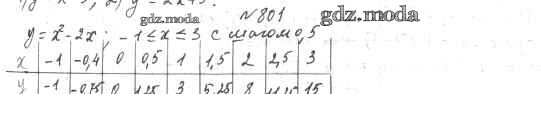 №801
gdz.moda
gdz.moda
y = x² - 2x ; - 1 ≤ x ≤ 3 с шагом 0,5
x | -1 | -0,4 | 0 | 0,5 | 1 | 1,5 | 2 | 2,5 | 3
y | -1 | -0,75 | 0 | 1,25 | 3 | 5,25 | 8 | 15